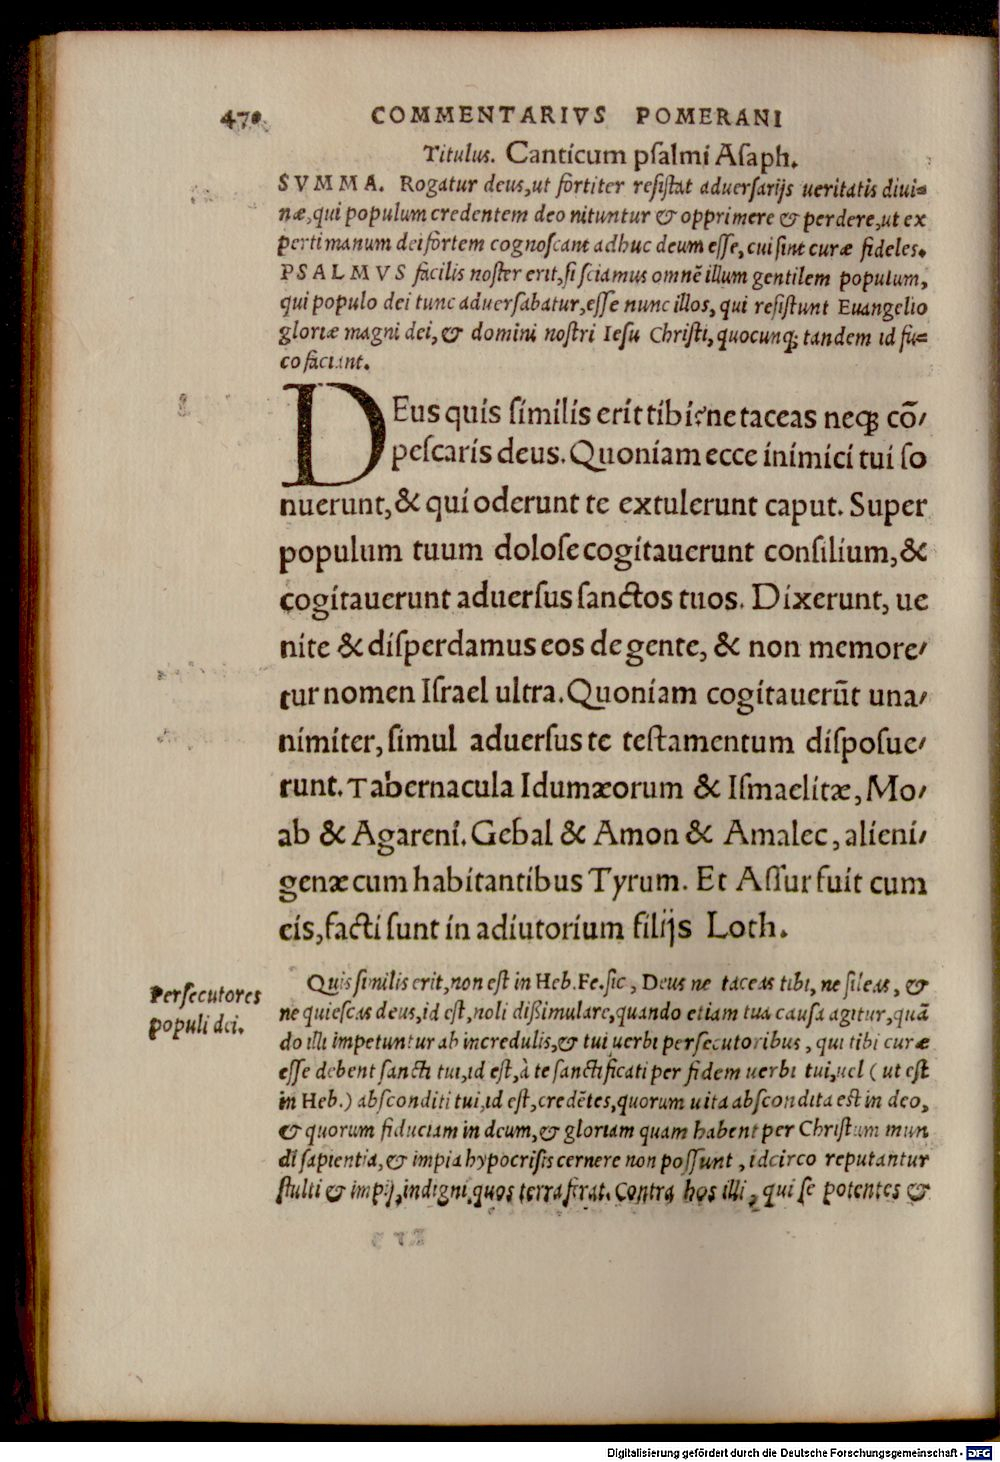 470
COMMENTARIVS POMERANI
Titulus. Canticum psalmi Asaph.
SVMMA. Rogatur deus, ut fortiter resistat aduersarijs ueritatis diui=
næ, qui populum credentem deo nituntur & opprimere & perdere, ut ex
perti manum dei fortem cognoscant adhuc deum esse, cui sint curæ fideles.
PSALMVS facilis noster erit, si sciamus omnē illum gentilem populum,
qui populo dei tunc aduersabatur, esse nunc illos, qui resistunt Euangelio
gloriæ magni dei, & domini nostri Iesu Christi, quocunq; tandem id fu=
co faciant.
DEus quis similis erit tibi? ne taceas neq; cō/
pescaris deus. Quoniam ecce inimici tui so
nuerunt, & qui oderunt te extulerunt caput. Super
populum tuum dolose cogitauerunt consilium, &
cogitauerunt aduersus sanctos tuos. Dixerunt, ue
nite & disperdamus eos de gente, & non memore/
tur nomen Israel ultra. Quoniam cogitauerūt una/
nimiter, simul aduersus te testamentum disposue/
runt. Tabernacula Idumæorum & Ismaelitæ, Mo/
ab & Agareni. Gebal & Amon & Amalec, alieni/
genæ cum habitantibus Tyrum. Et Assur fuit cum
eis, facti sunt in adiutorium filijs Loth.
Persecutores
populi dei.
Quis similis erit, non est in Heb. Fe. sic, Deus ne taceas tibi, ne sileas, &
ne quiescas deus, id est, noli dißimulare, quando etiam tua causa agitur, quā
do illi impetuntur ab incredulis, & tui uerbi persecutoribus, qui tibi curæ
esse debent sancti tui, id est, à te sanctificati per fidem uerbi tui, uel (ut est
in Heb.) absconditi tui, id est, credētes, quorum uita abscondita est in deo,
& quorum fiduciam in deum, & gloriam quam habent per Christum mun
di sapientia, & impia hypocrisis cernere non possunt, idcirco reputantur
stulti & impij, indigni, quos terra ferat. Contra hos illi, qui se potentes &
Digitalisierung gefördert durch die Deutsche Forschungsgemeinschaft - DFG